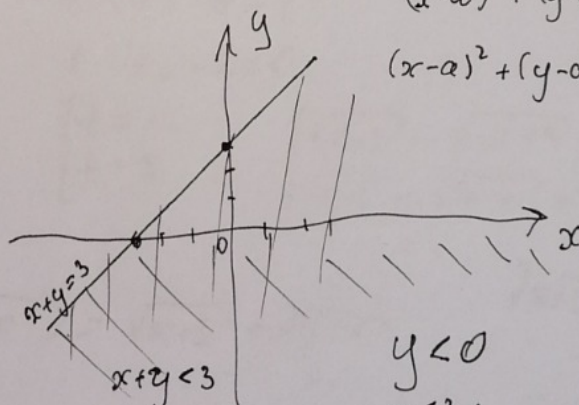 y
(x-a)² + (y-a
0
x
x+y=3
x+y<3
y<0